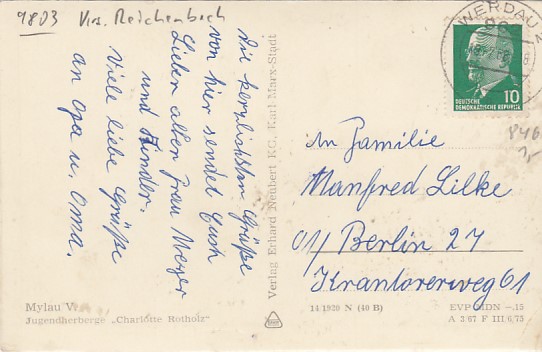 9803 Krs. Reichenbach
die herzlichsten Grüße
von hier sendet Euch
Lieben alten Frau Meyer
und Kinder.
Viele liebe Grüße
an Opa u. Oma.
Verlag Erhard Neubert KG. Karl-Marx-Stadt
WERDAU
DEUTSCHE
DEMOKRATISCHE REPUBLIK
10
An Familie
Manfred Lilke
01/ Berlin 27
Krantorerweg 61
Mylau V.
Jugendherberge „Charlotte Rotholz"
14 1920 N (40 B)
EVP MDN -.15
A 3/67 F III 6/75